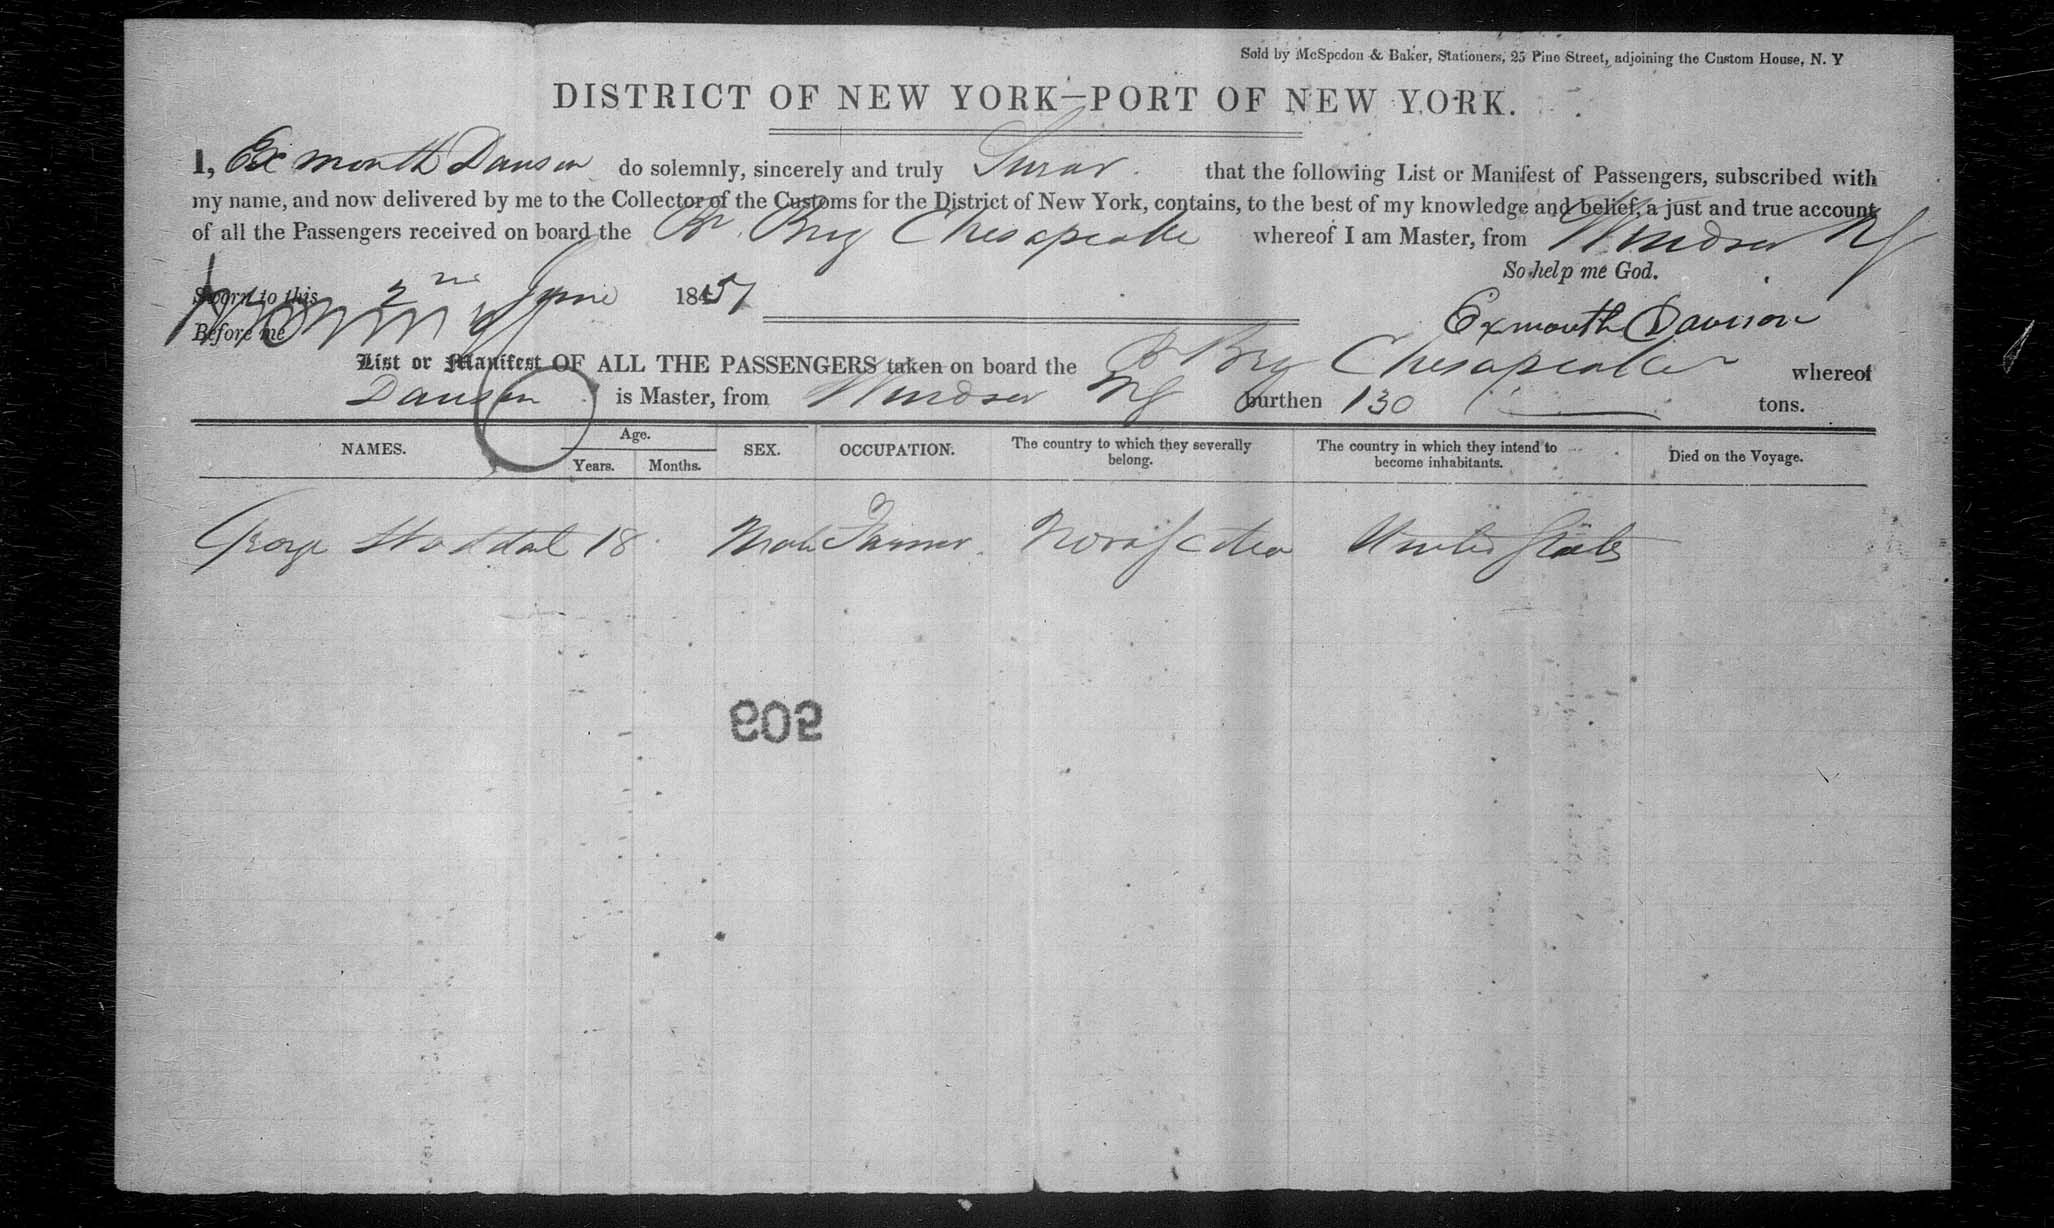 Sold by McSpedon & Baker, Stationers, 25 Pine Street, adjoining the Custom House, N. Y
DISTRICT OF NEW YORK—PORT OF NEW YORK.
I, Exmouth Dawson do solemnly, sincerely and truly Swear that the following List or Manifest of Passengers, subscribed with
my name, and now delivered by me to the Collector of the Customs for the District of New York, contains, to the best of my knowledge and belief, a just and true account
of all the Passengers received on board the Br. Brig Chesapeake whereof I am Master, from Windsor NS
So help me God.
Sworn to this 2nd June 1851
Exmouth Davison
Before me
List or Manifest OF ALL THE PASSENGERS taken on board the B Brig Chesapeake whereof
Dawson is Master, from Windsor NS burthen 130 tons.
NAMES. Age. Years. Months. SEX. OCCUPATION. The country to which they severally belong. The country in which they intend to become inhabitants. Died on the Voyage.
George Stoddart 18 Male Farmer Nova Scotia United States
509